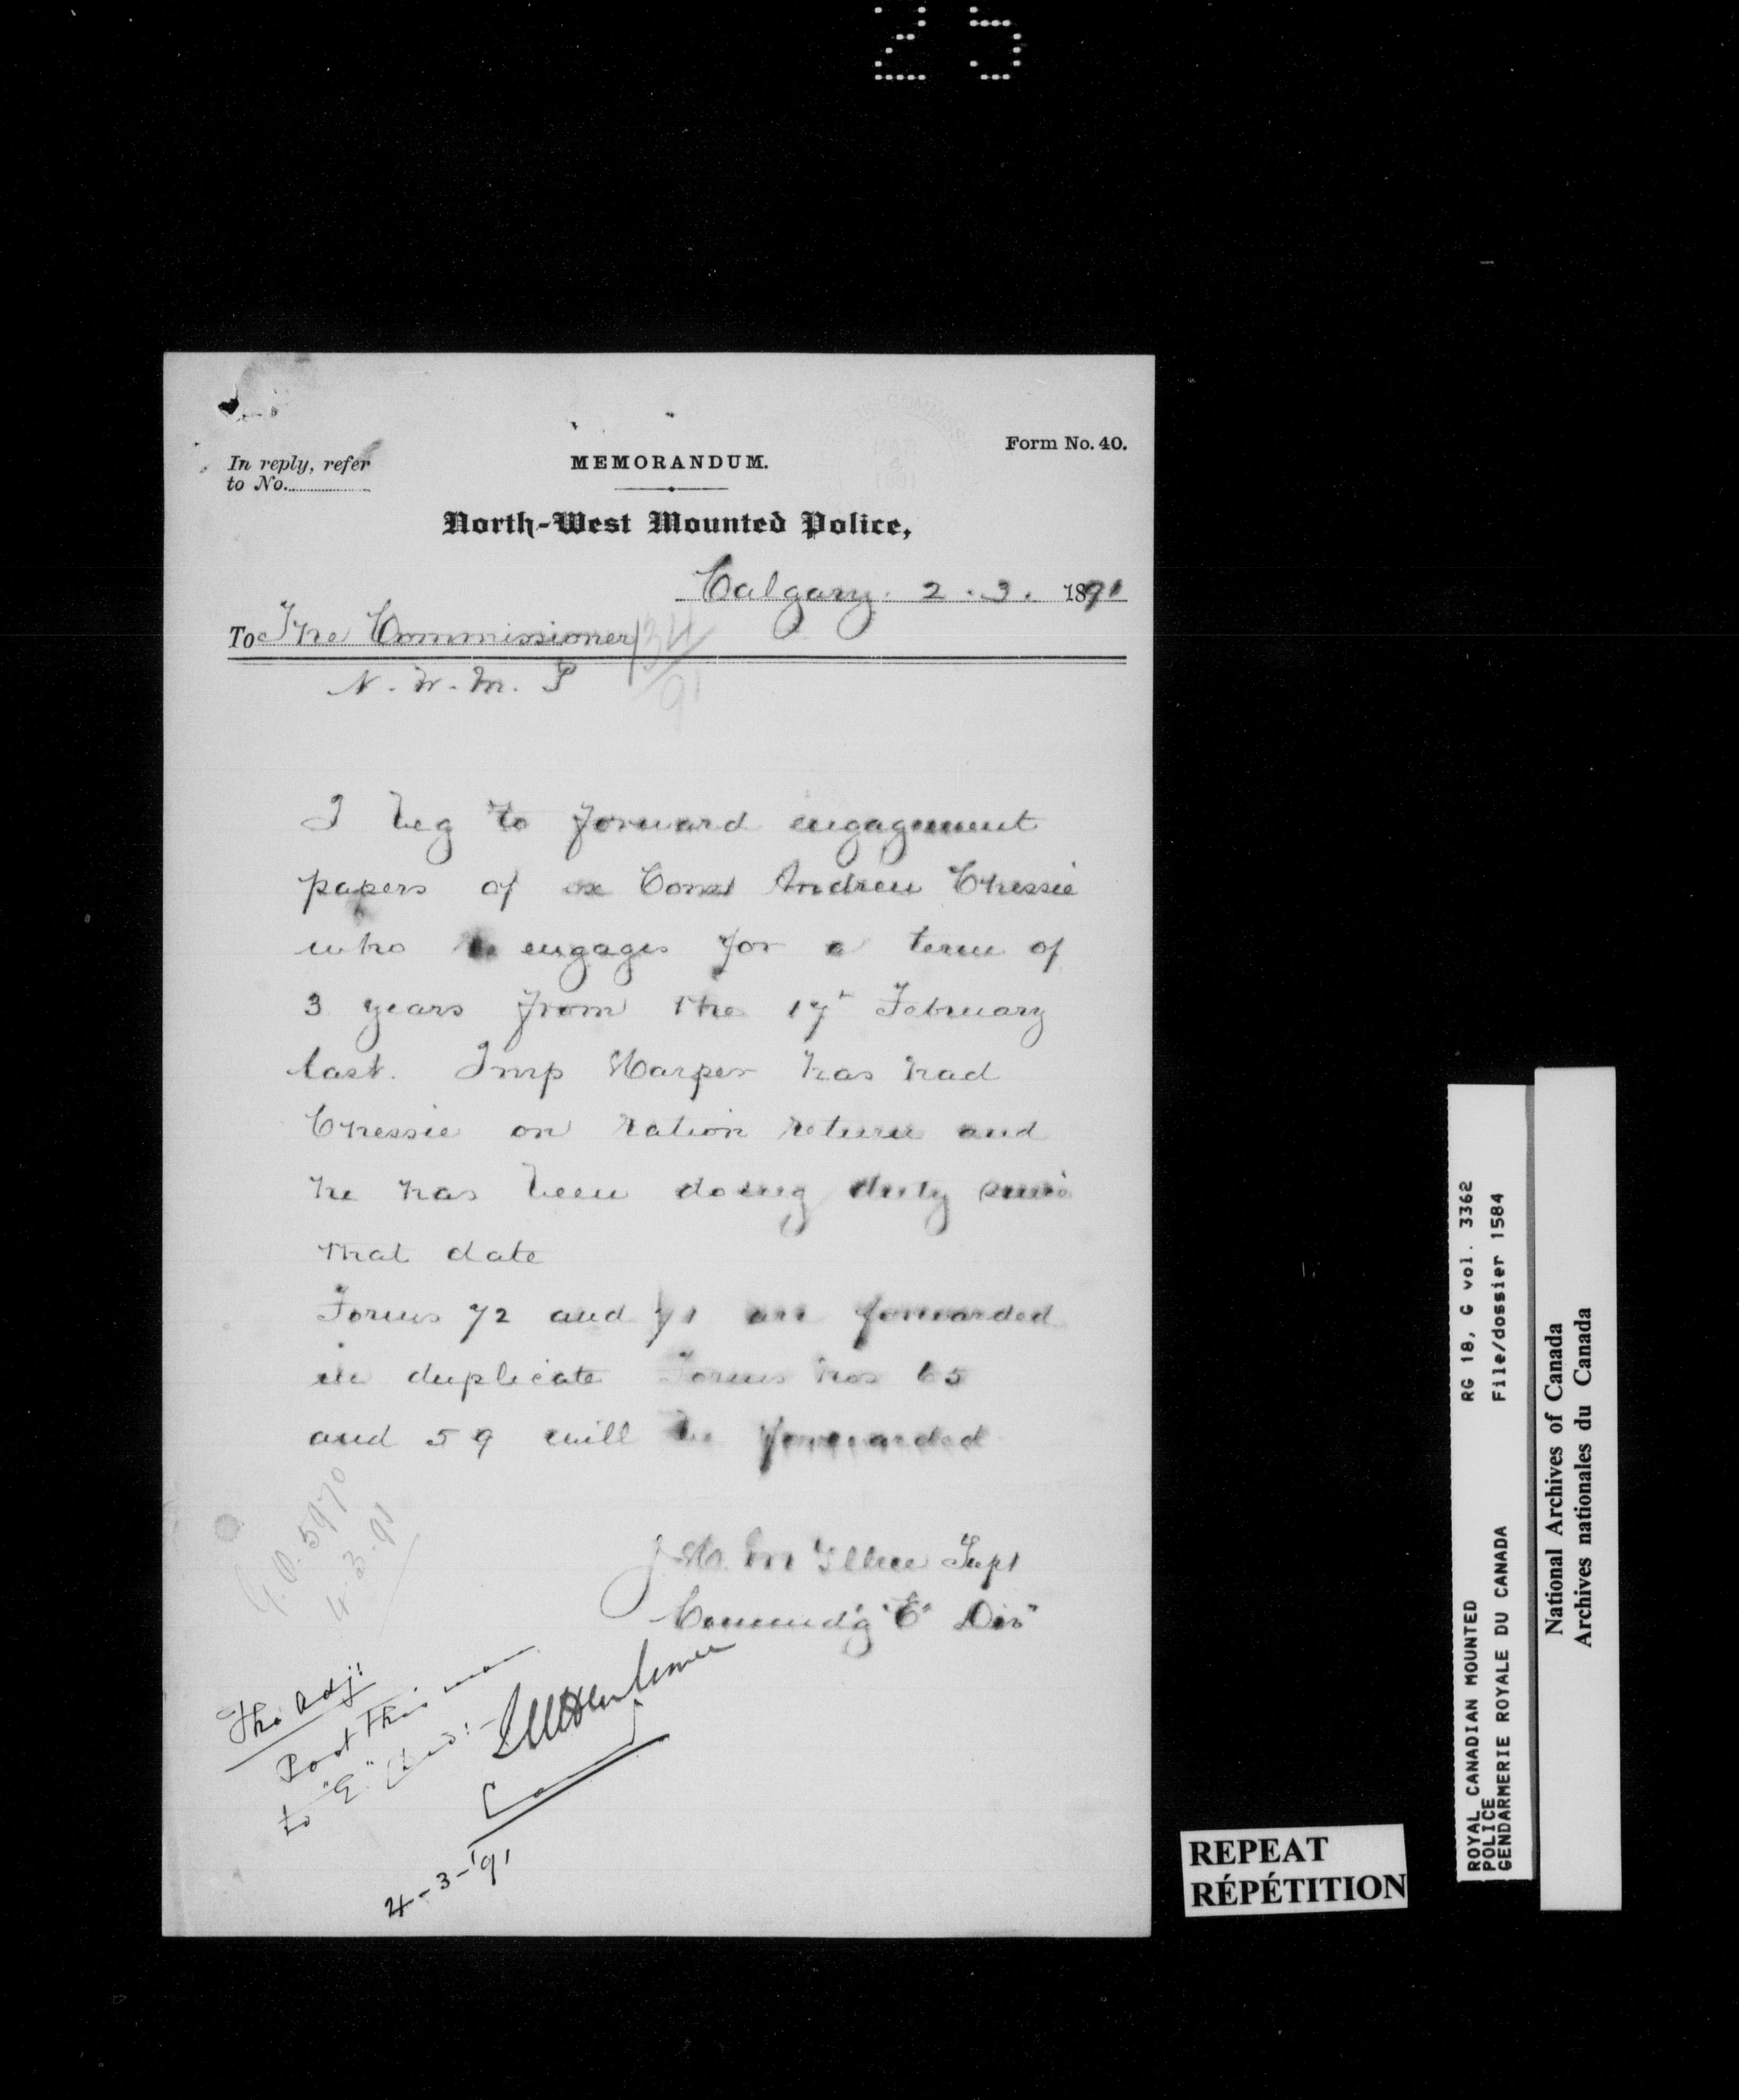 25
Form No. 40.
In reply, refer
to No.
MEMORANDUM.
North-West Mounted Police,
Calgary. 2. 3. 1891
To The Commissioner
N. W. M. P
I beg to forward engagement
papers of ex Const Andrew Chessie
who engages for a term of
3 years from the 17t February
last. Insp Harper has had
Chessie on ration return and
he has been doing duty since
that date
Forms 72 and 71 are forwarded
in duplicate Forms Nos 65
and 59 will be forwarded
J. H. McIllree Supt
Commd'g "E" Divn
G.O. 5970
4-3-91
The Adjt
Post this man
to "E"
4-3-'91
REPEAT
RÉPÉTITION
ROYAL CANADIAN MOUNTED
POLICE
GENDARMERIE ROYALE DU CANADA
RG 18, G vol. 3362
File/dossier 1584
National Archives of Canada
Archives nationales du Canada